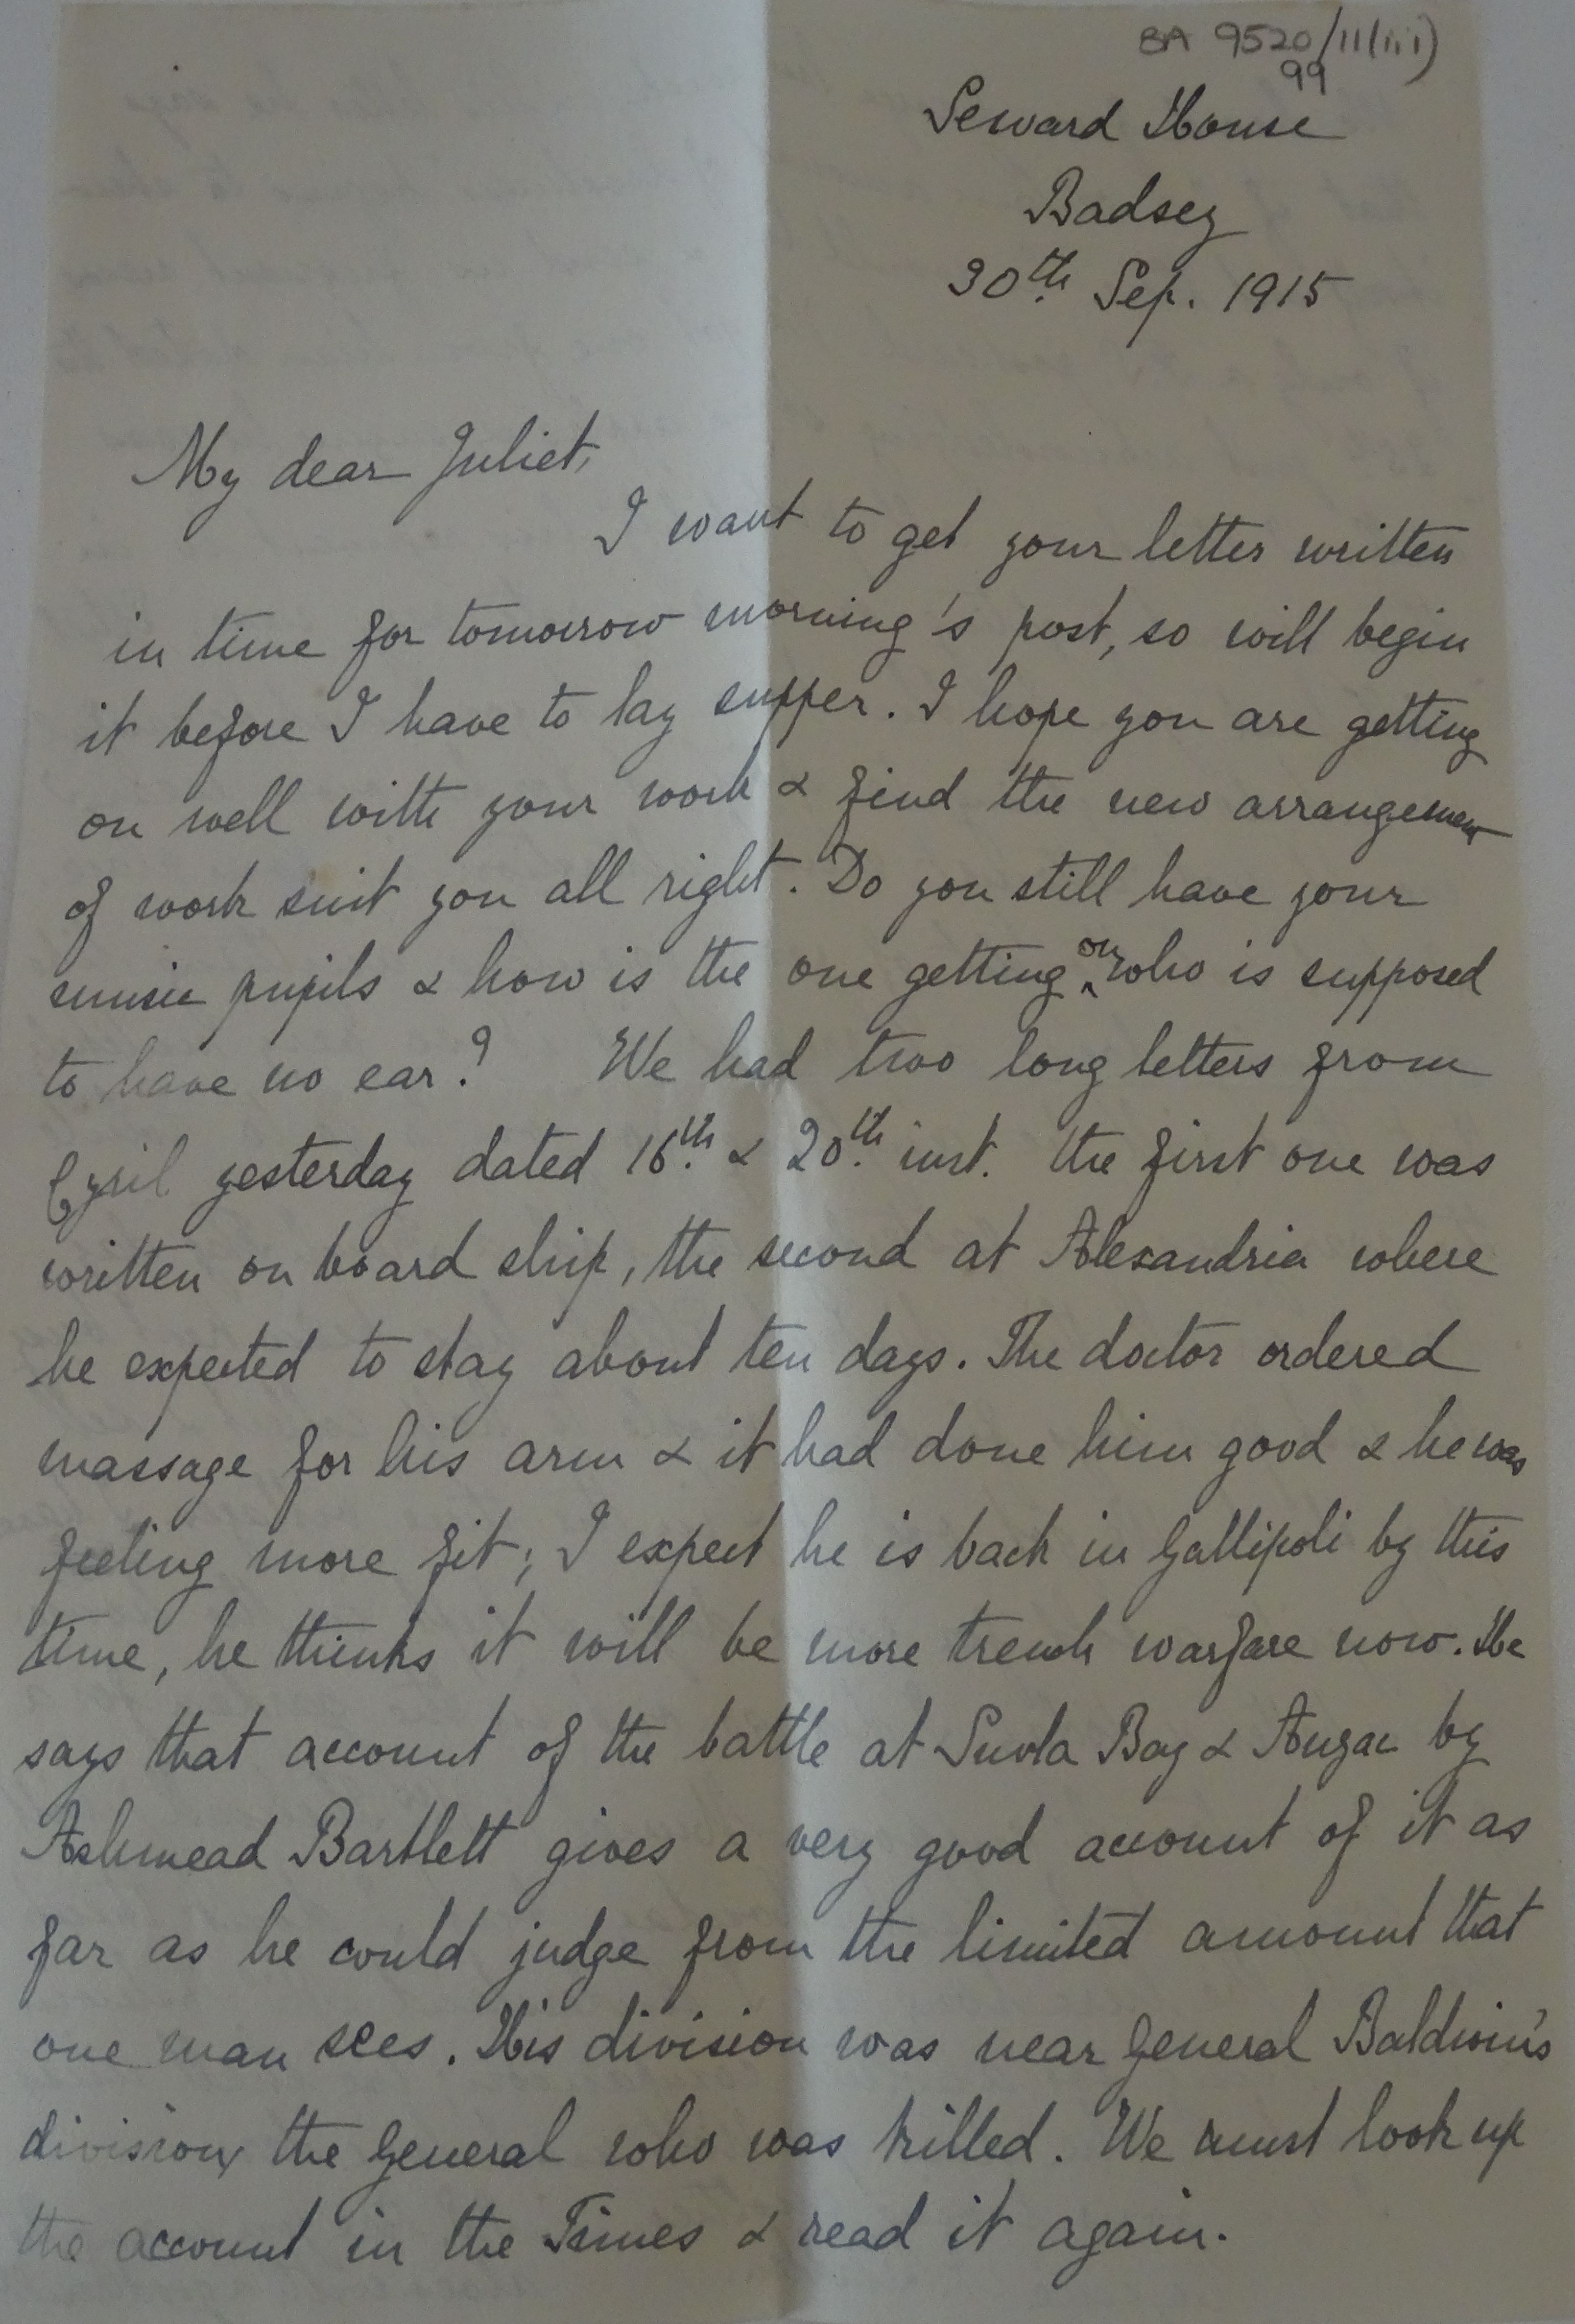 BA 9520/11(iii)
99
Seward House
Badsey
30th Sep. 1915
My dear Juliet,
I want to get your letter written
in time for tomorrow morning's post, so will begin
it before I have to lay supper. I hope you are getting
on well with your work & find the new arrangement
of work suit you all right. Do you still have your
music pupils & how is the one getting on who is supposed
to have no ear? We had two long letters from
Cyril yesterday dated 16th & 20th inst. the first one was
written on board ship, the second at Alexandria where
he expected to stay about ten days. The doctor ordered
massage for his arm & it had done him good & he was
feeling more fit; I expect he is back in Gallipoli by this
time, he thinks it will be more trench warfare now. He
says that account of the battle at Suvla Bay & Anzac by
Ashmead Bartlett gives a very good account of it as
far as he could judge from the limited amount that
one man sees. His division was near General Baldwin's
division, the General who was killed. We must look up
the account in the Times & read it again.